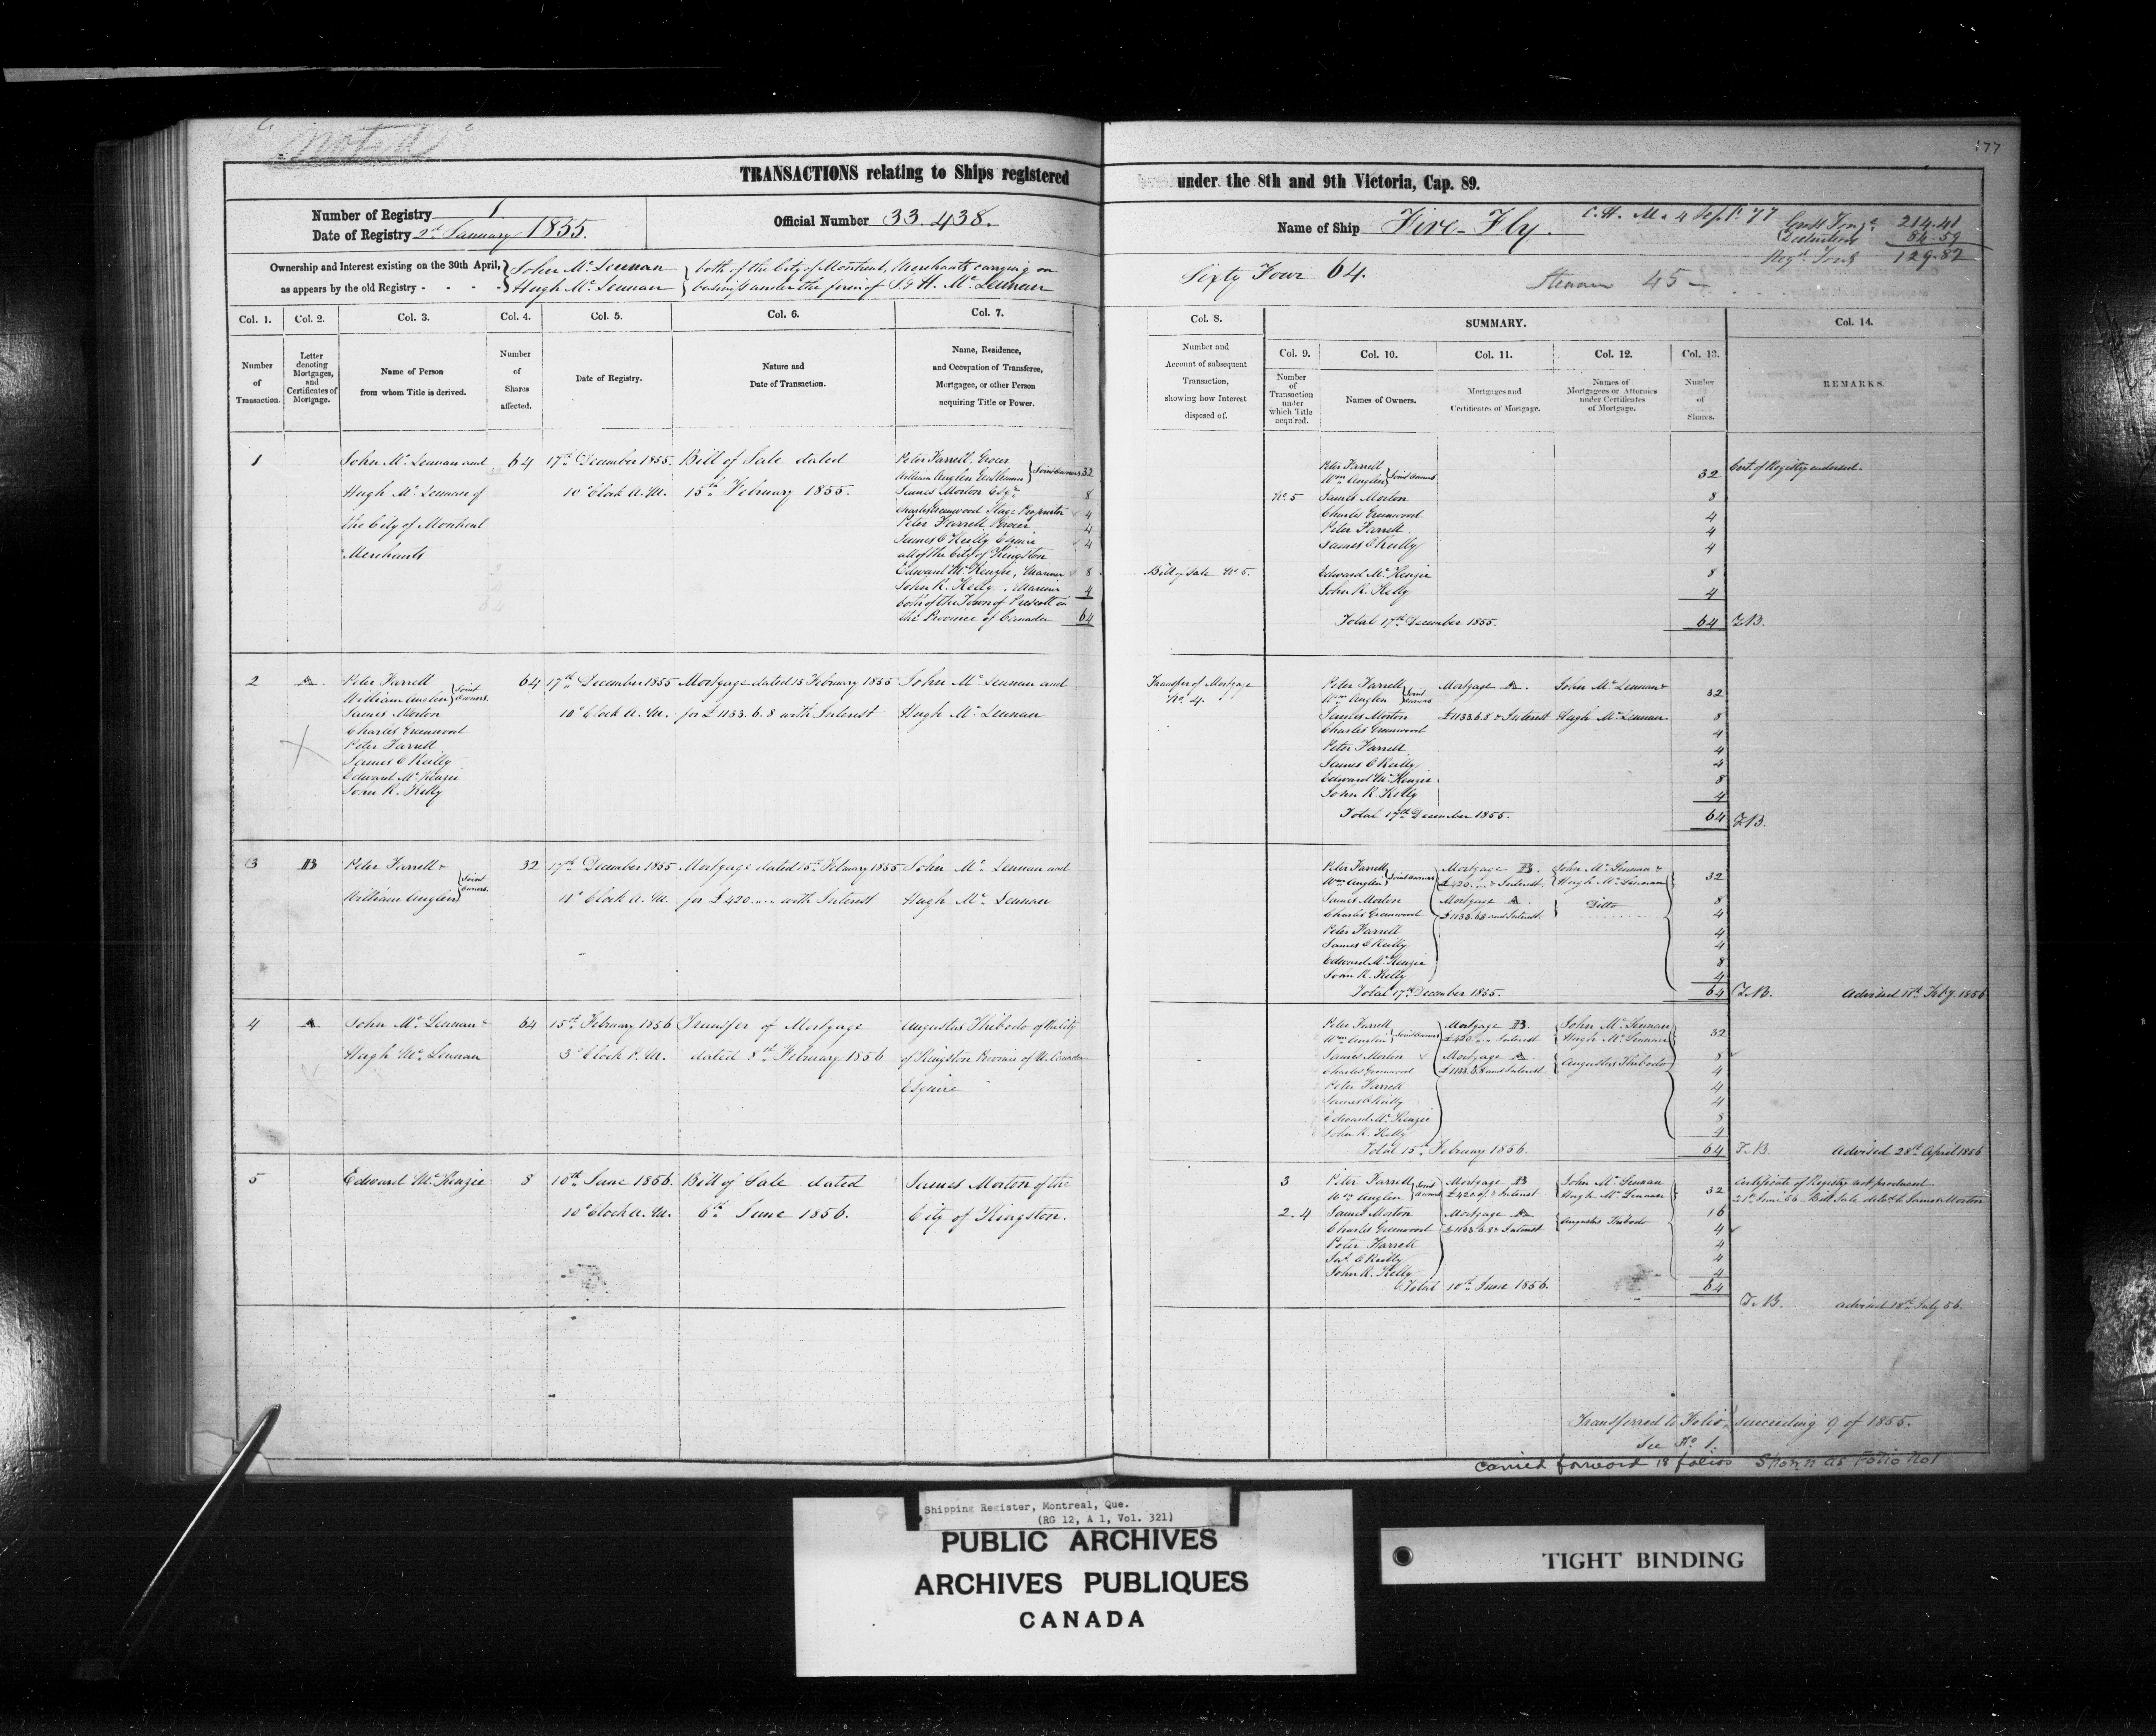 "Noted"
177
TRANSACTIONS relating to Ships registered under the 8th and 9th Victoria, Cap. 89.
Number of Registry 1
Date of Registry 2d January 1855.
Official Number 33.438.
Name of Ship Fire-Fly.
C.H. M. 4 Sept. '77
Gross Tong. 214.41
Deductions 84.59
Regd. Tons 129.82
Ownership and Interest existing on the 30th April,
as appears by the old Registry - - - -
John Mc Lennan
Hugh Mc Lennan
both of the City of Montreal, Merchants carrying on
business under the firm of J. & H. Mc Lennan
Sixty Four 64.
Steamer 45
Col. 1.
Col. 2.
Col. 3.
Col. 4.
Col. 5.
Col. 6.
Col. 7.
Col. 8.
SUMMARY.
Col. 9.
Col. 10.
Col. 11.
Col. 12.
Col. 13.
Col. 14.
Number
of
Transaction.
Letter
denoting
Mortgages,
and
Certificates of
Mortgage.
Name of Person
from whom Title is derived.
Number
of
Shares
affected.
Date of Registry.
Nature and
Date of Transaction.
Name, Residence,
and Occupation of Transferee,
Mortgagee, or other Person
acquiring Title or Power.
Number and
Account of subsequent
Transaction,
showing how Interest
disposed of.
Number
of
Transaction
under
which Title
acquired.
Names of Owners.
Mortgages and
Certificates of Mortgage.
Names of
Mortgagees or Attornies
under Certificates
of Mortgage.
Number
of
Shares.
REMARKS.
1
John Mc Lennan and
Hugh Mc Lennan of
the City of Montreal
Merchants
64
17th December 1855.
10 o'Clock A.M.
Bill of Sale dated
15th February 1855.
Peter Farrell, Grocer
William Anglen Gentleman } Joint Owners 32
James Morton Esqr. 8
Charles Greenwood Stage Proprietor 4
Peter Farrell Grocer 4
James O'Reilly Esquire 4
all of the City of Kingston
Edward Mc Kenzie, Mariner 8
John R. Kelly, Mariner 4
both of the Town of Prescott in
the Province of Canada 64
Bill of Sale No. 5.
No. 5
Peter Farrell
Wm Anglen } Joint Owners 32
James Morton 8
Charles Greenwood 4
Peter Farrell 4
James O'Reilly 4
Edward Mc Kenzie 8
John R. Kelly 4
Total 17th December 1855. 64
Cert. of Registry endorsed.
T.B.
2
A.
Peter Farrell
William Anglen } Joint Owners.
James Morton
Charles Greenwood
Peter Farrell
James O'Reilly
Edward Mc Kenzie
John R. Kelly
64
17th December 1855
10 o'Clock A.M.
Mortgage dated 15 February 1855
for £1133.6.8 with Interest
John Mc Lennan and
Hugh Mc Lennan
Transfer of Mortgage
No. 4.
Peter Farrell
Wm Anglen } Joint Owners 32
James Morton 8
Charles Greenwood 4
Peter Farrell 4
James O'Reilly 4
Edward Mc Kenzie 8
John R. Kelly 4
Total 17th December 1855. 64
Mortgage A.
£1133.6.8 & Interest
John Mc Lennan &
Hugh Mc Lennan
T.B.
3
B
Peter Farrell &
William Anglen } Joint Owners.
32
17th December 1855
11 o'Clock A.M.
Mortgage dated 15th February 1855
for £420.„.„ with Interest
John Mc Lennan and
Hugh Mc Lennan
Peter Farrell
Wm Anglen } Joint Owners 32
James Morton 8
Charles Greenwood 4
Peter Farrell 4
James O'Reilly 4
Edward Mc Kenzie 8
John R. Kelly 4
Total 17th December 1855. 64
Mortgage B.
£420.„.„ & Interest.
Mortgage A.
£1133.6.8 and Interest.
John Mc Lennan &
Hugh Mc Lennan
Ditto
T.B. Advised 11th Feby. 1856
4
A.
John Mc Lennan &
Hugh Mc Lennan
64
15th February 1856
3 o'Clock P.M.
Transfer of Mortgage
dated 8th February 1856
Augustus Thibodo of the City
of Kingston Province of U. Canada
Esquire
Peter Farrell
Wm Anglen } Joint Owners 32
James Morton 8
Charles Greenwood 4
Peter Farrell 4
James O'Reilly 4
Edward Mc Kenzie 8
John R. Kelly 4
Total 15th February 1856. 64
Mortgage B.
£420.„.„ Interest
Mortgage A.
£1133.6.8 and Interest
John Mc Lennan
Hugh Mc Lennan
Augustus Thibodo
T.B. Advised 28th April 1856
5
Edward Mc Kenzie
8
10th June 1856.
10 o'Clock A.M.
Bill of Sale dated
6th June 1856.
James Morton of the
City of Kingston.
3
2.4
Peter Farrell
Wm Anglen } Joint Owners 32
James Morton 16
Charles Greenwood 4
Peter Farrell 4
Jas. O'Reilly 4
John R. Kelly 4
Total 10th June 1856. 64
Mortgage B
£420 & Interest
Mortgage A
£1133.6.8 & Interest
John Mc Lennan
Hugh Mc Lennan
Augustus Thibodo
Certificate of Registry not produced
21st June 56. Bill Sale deld. to James Morton
T.B. advised 18th July 56.
Transferred to Folio succeeding 9 of 1855.
See No. 1.
Carried forward 18 folios Shown as Folio No 1
Shipping Register, Montreal, Que.
(RG 12, A 1, Vol. 321)
PUBLIC ARCHIVES
ARCHIVES PUBLIQUES
CANADA
TIGHT BINDING